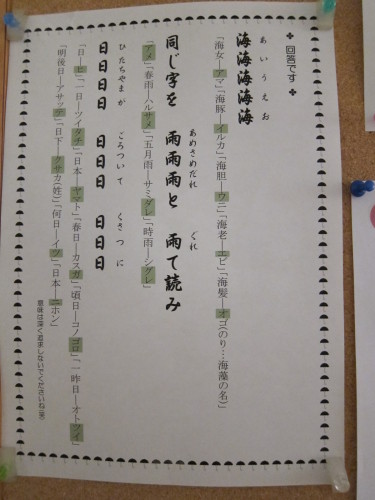 ❖ 回答です ❖
あいうえお
海海海海海
「海女―アマ」「海豚―イルカ」「海胆―ウニ」「海老―エビ」「海髪―オゴ(のり…海藻の名)」
あめさめだれ ぐれ
同じ字を 雨雨雨と 雨て読み
「アメ」「春雨―ハルサメ」「五月雨―サミダレ」「時雨―シグレ」
ひたちやまが ごろついて くさつに
日日日日 日日日 日日日
「日―ヒ」「一日―ツイタチ」「日本―ヤマト」「春日―カスガ」「頃日―コノゴロ」「一昨日―オトツイ」
「明後日―アサッテ」「日下―クサカ(姓)」「何日―イツ」「日本―ニホン」
意味は深く追求しないでくださいね(笑)